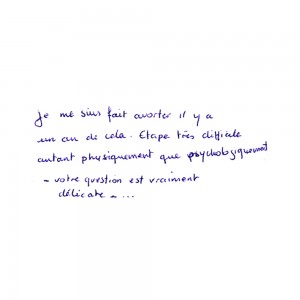 Je me suis fait avorter il y a
un an de cela. Etape très difficile
autant physiquement que psychologiquement
- votre question est vraiment
délicate - ...